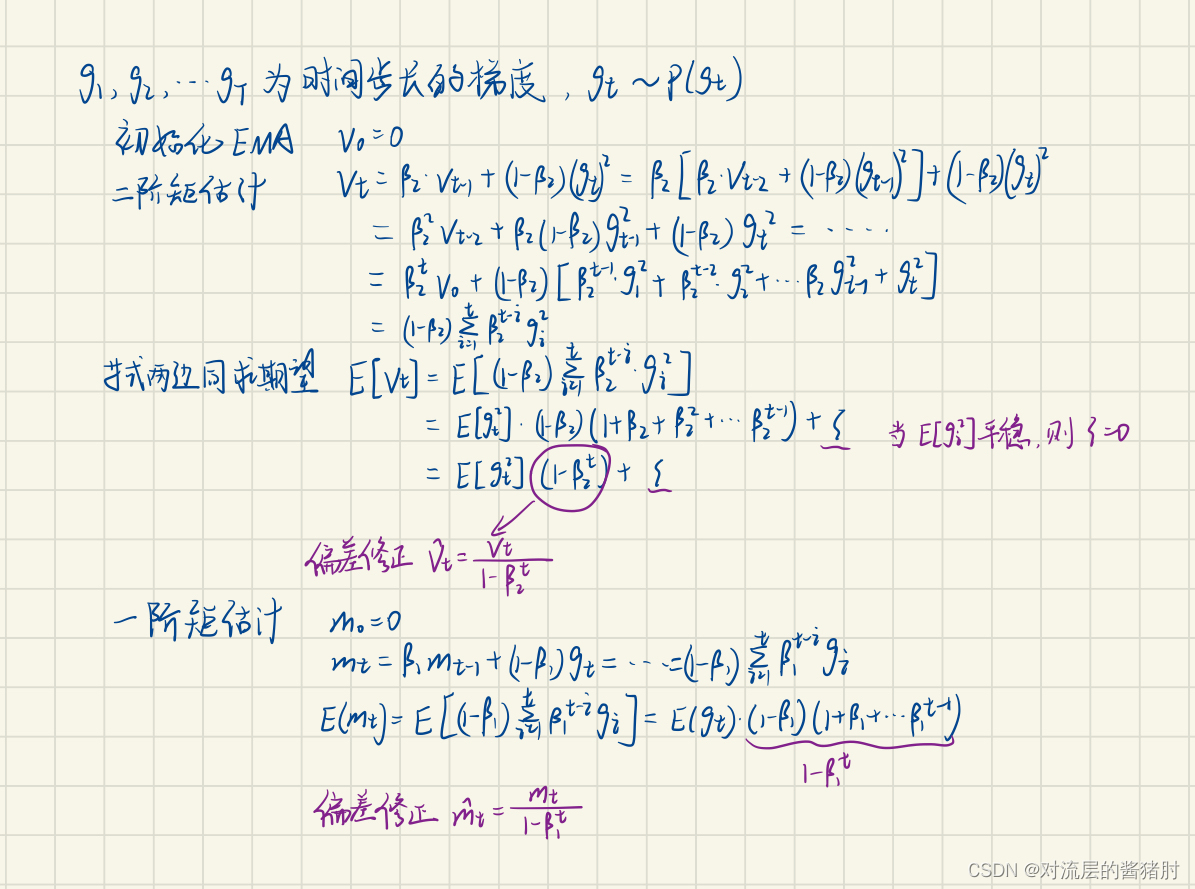 g₁, g₂, ⋯ g_T 为时间步长的梯度, g_t ~ P(g_t)
初始化EMA V₀=0
二阶矩估计 V_t = β₂·V_{t-1} + (1-β₂)(g_t)² = β₂[β₂·V_{t-2} + (1-β₂)(g_{t-1})²] + (1-β₂)(g_t)²
= β₂² V_{t-2} + β₂(1-β₂) g_{t-1}² + (1-β₂) g_t² = ⋯⋯
= β₂^t V₀ + (1-β₂)[β₂^{t-1}·g₁² + β₂^{t-2}·g₂² + ⋯ β₂ g_{t-1}² + g_t²]
= (1-β₂) Σ_{i=1}^t β₂^{t-i} g_i²
等式两边同求期望 E[V_t] = E[(1-β₂) Σ_{i=1}^t β₂^{t-i}·g_i²]
= E[g_t²]·(1-β₂)(1+β₂+β₂²+⋯β₂^{t-1}) + ξ 当E[g_i²]平稳,则ξ=0
= E[g_t²](1-β₂^t) + ξ
偏差修正 v̂_t = V_t / (1-β₂^t)
一阶矩估计 m₀=0
m_t = β₁m_{t-1} + (1-β₁)g_t = ⋯⋯ = (1-β₁) Σ_{i=1}^t β₁^{t-i} g_i
E(m_t) = E[(1-β₁) Σ_{i=1}^t β₁^{t-i} g_i] = E(g_t)·(1-β₁)(1+β₁+⋯β₁^{t-1})
1-β₁^t
偏差修正 m̂_t = m_t / (1-β₁^t)
CSDN @对流层的酱猪肘